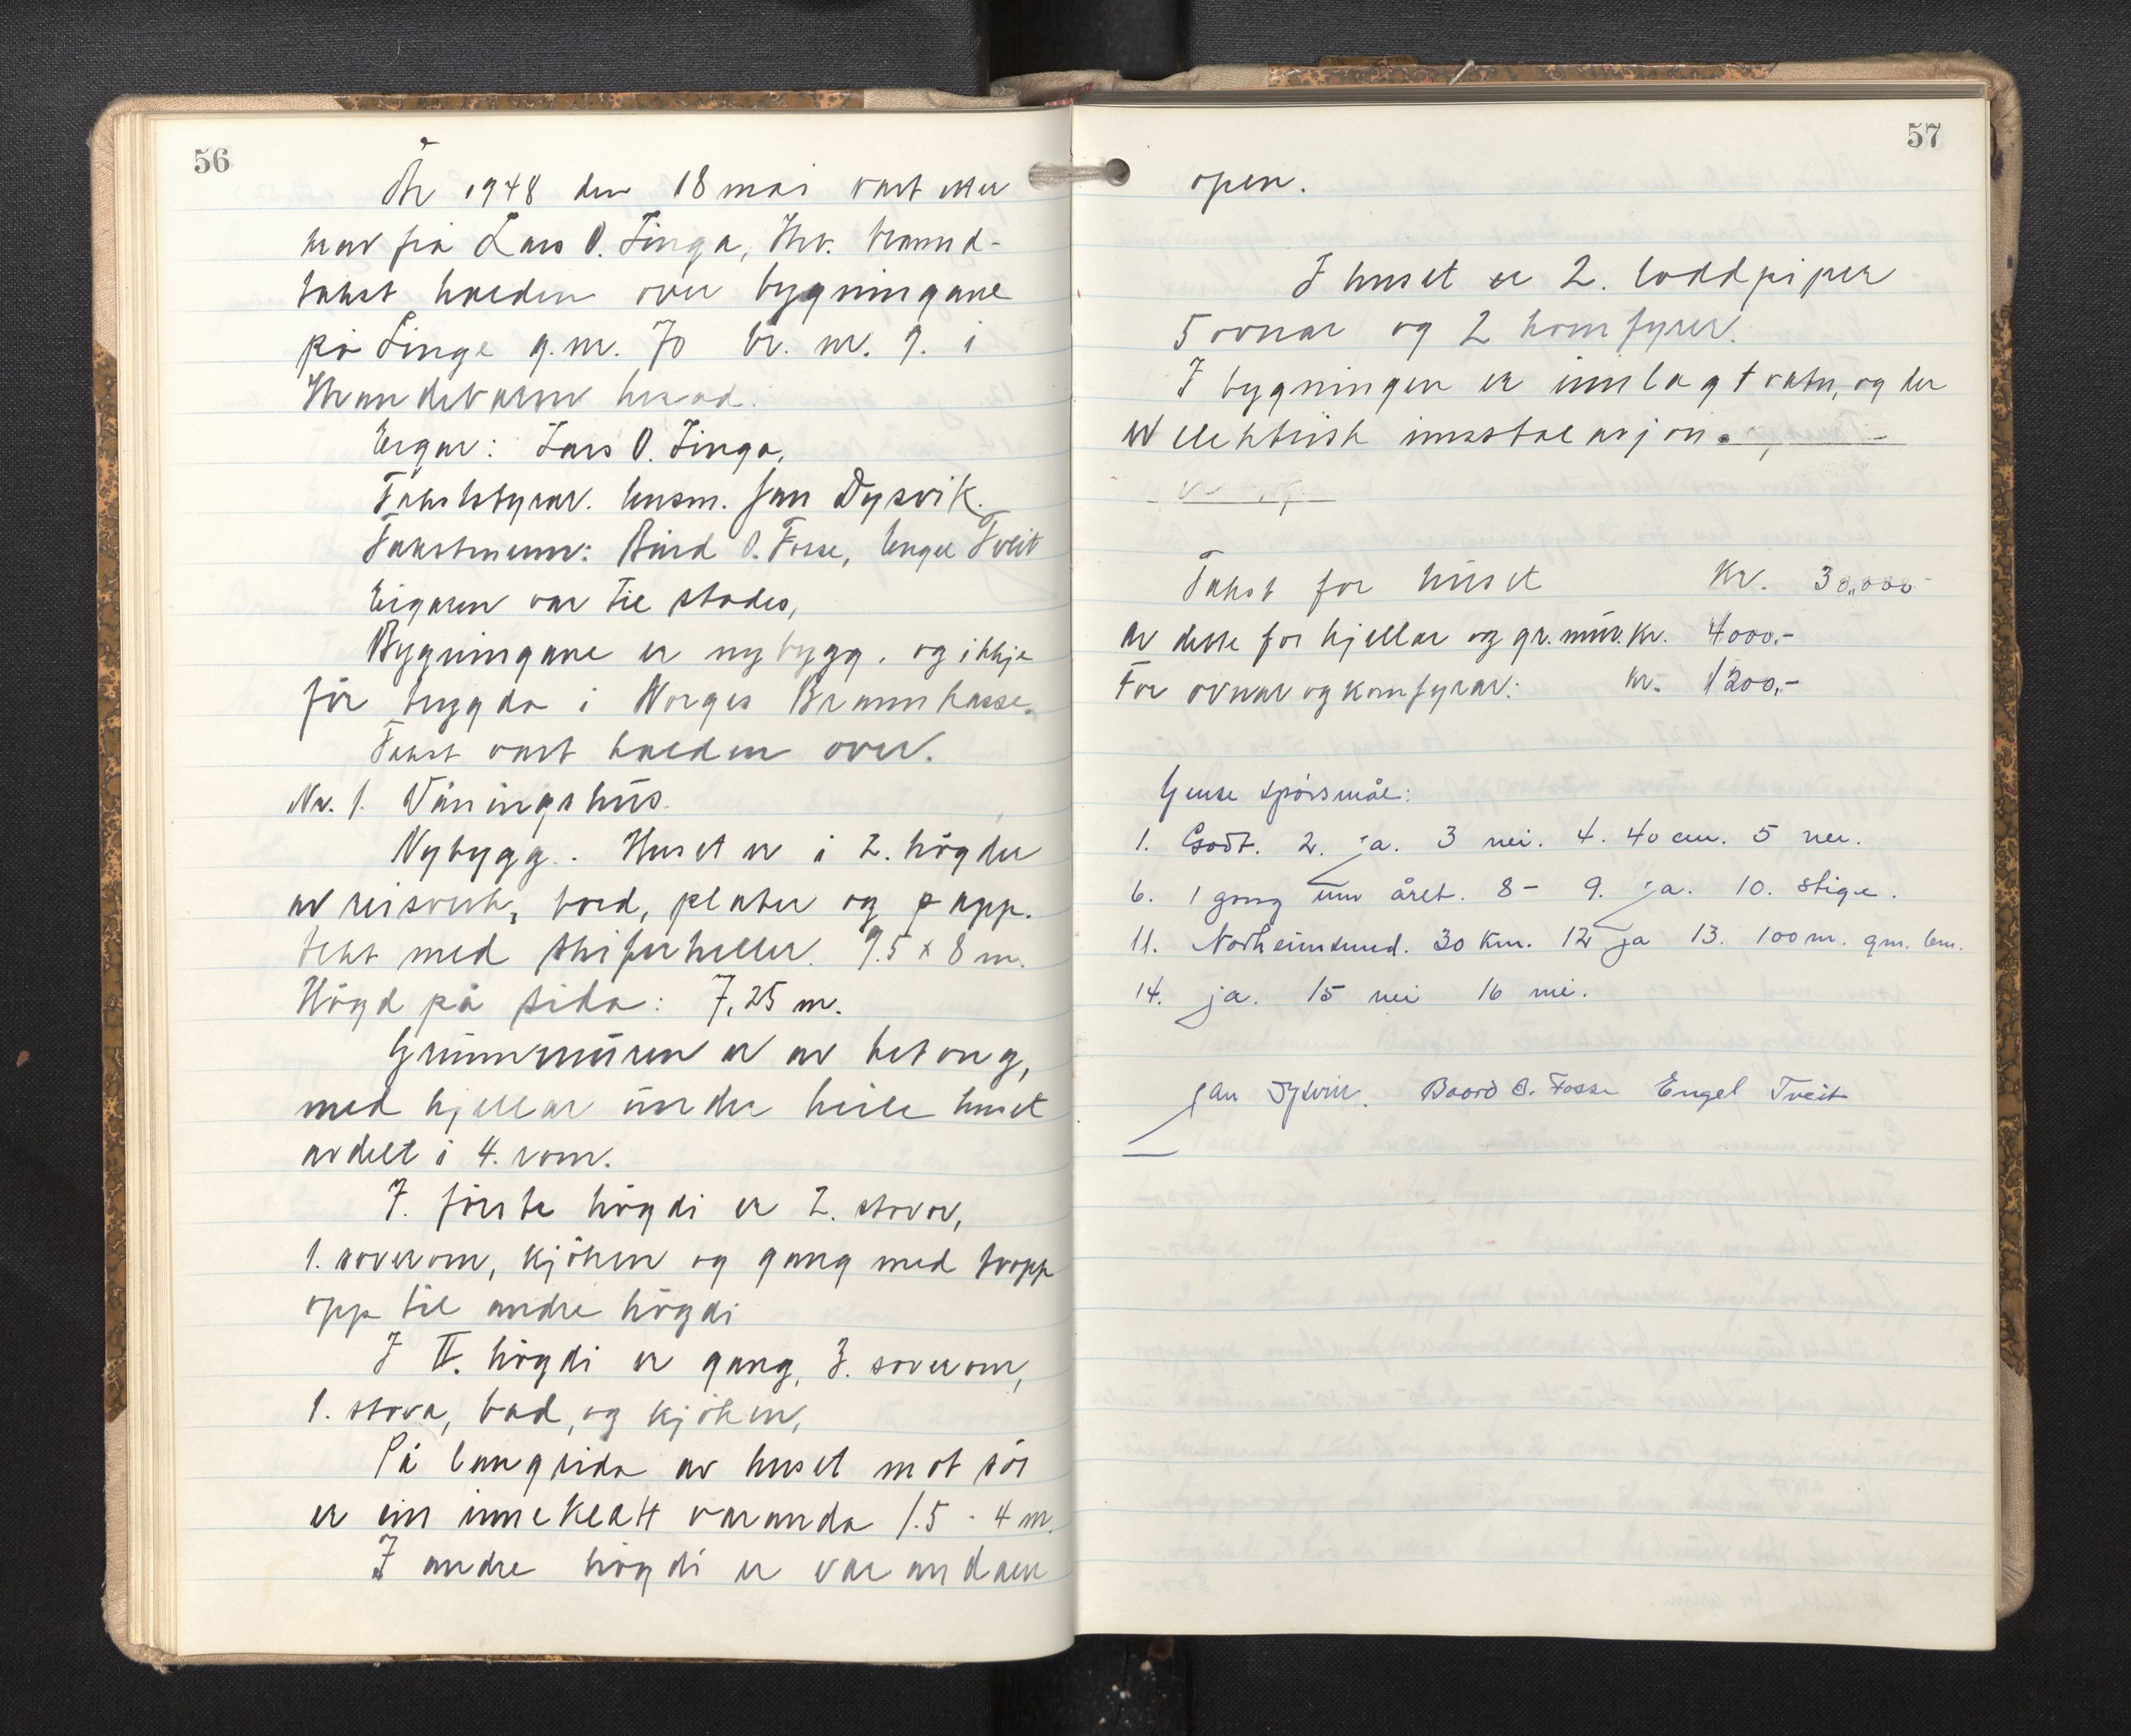 56
År 1948 den 18 mai vart etter
krav frå Lars O. Linga, Str. brannd-
takst halden over bygningane
på Linge g.nr. 70 br. nr. 9. i
Strandebarm herad.
Eigar: Lars O. Linga,
Takststyrar. lensm. Jan Dysvik.
Takstmenn: Bård O. Fosse, Engel Tveit
Eigaren var til stades,
Bygningane er nybygg. og ikkje
för trygda i Norges Brannkasse.
Takst vart halden over.
Nr. 1. Våningshus.
Nybygg. Huset er i 2. högder
av reisverk, bord, plater og papp.
tekt med skiferheller. 9.5 x 8 m.
Högd på sida: 7,25 m.
Grunnmuren er av betong,
med kjellar under heile huset
avdelt i 4. rom.
I. förste högdi er 2. stovor,
1. soverom, kjöken og gang med tropp
opp til andre högdi
I II. högdi er gang, 3. soverom,
1. stova, bad, og kjöken,
På langsida av huset mot sör
er ein innekledt varanda 1.5 · 4 m.
I andre högdi er varandaen
57
open.
I huset er 2. loddpiper
5 ovnar og 2 komfyrer.
I bygningen er innlagt vatn, og der
er elektrisk innstalasjon.
Takst for huset Kr. 30,000-
Av desse for kjellar og gr.mur. Kr. 4000.-
For ovnar og komfyrar: kr. 1200,-
Gense spörsmål:
1. Godt. 2. ja. 3 nei. 4. 40 cm. 5 nei.
6. 1 gong um året. 8- 9. ja. 10. Stige.
11. Norheimsund. 30 km. 12 ja 13. 100 m. gm. lem.
14. ja. 15 nei 16 nei.
Jan Dysvik. Baard O. Fosse Engel Tveit